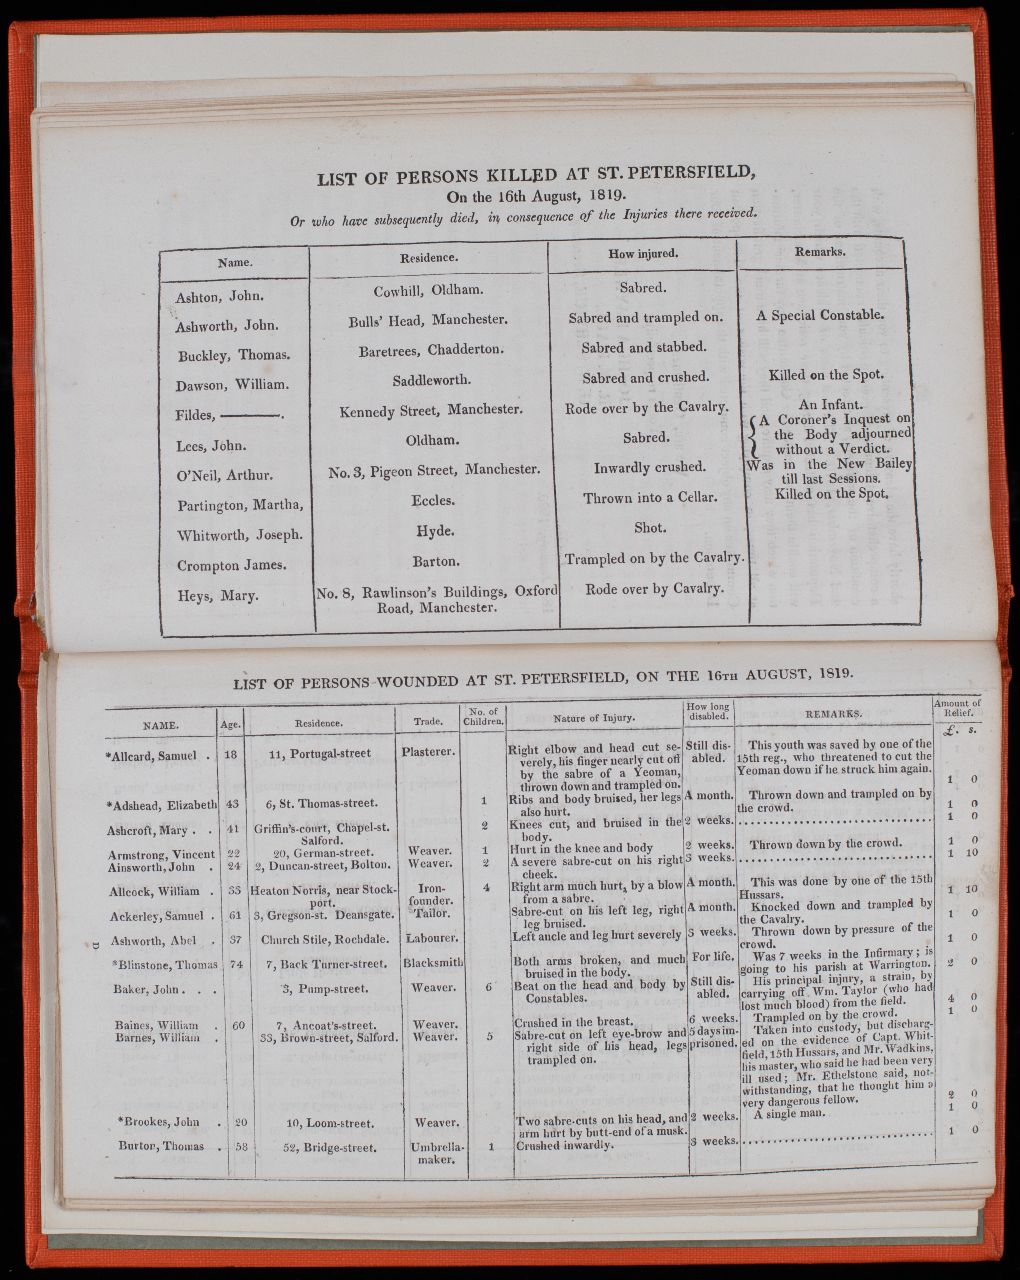 LIST OF PERSONS KILLED AT ST. PETERSFIELD,
On the 16th August, 1819.
Or who have subsequently died, in consequence of the Injuries there received.
Name. Residence. How injured. Remarks.
Ashton, John. Cowhill, Oldham. Sabred.
Ashworth, John. Bulls' Head, Manchester. Sabred and trampled on. A Special Constable.
Buckley, Thomas. Baretrees, Chadderton. Sabred and stabbed.
Dawson, William. Saddleworth. Sabred and crushed. Killed on the Spot.
Fildes, ————. Kennedy Street, Manchester. Rode over by the Cavalry. An Infant.
Lees, John. Oldham. Sabred. { A Coroner's Inquest on
the Body adjourned
without a Verdict.
O'Neil, Arthur. No. 3, Pigeon Street, Manchester. Inwardly crushed. Was in the New Bailey
till last Sessions.
Partington, Martha, Eccles. Thrown into a Cellar. Killed on the Spot.
Whitworth, Joseph. Hyde. Shot.
Crompton James. Barton. Trampled on by the Cavalry.
Heys, Mary. No. 8, Rawlinson's Buildings, Oxford Rode over by Cavalry.
Road, Manchester.
LIST OF PERSONS WOUNDED AT ST. PETERSFIELD, ON THE 16TH AUGUST, 1819.
NAME. Age. Residence. Trade. No. of Children. Nature of Injury. How long disabled. REMARKS. Amount of Relief.
£. s.
*Allcard, Samuel . 18 11, Portugal-street Plasterer. Right elbow and head cut se- Still dis- This youth was saved by one of the
verely, his finger nearly cut off abled. 15th reg., who threatened to cut the
by the sabre of a Yeoman, Yeoman down if he struck him again.
thrown down and trampled on. 1 0
*Adshead, Elizabeth 43 6, St. Thomas-street. 1 Ribs and body bruised, her legs A month. Thrown down and trampled on by
also hurt. the crowd. 1 0
Ashcroft, Mary . . 41 Griffin's-court, Chapel-st. 2 Knees cut, and bruised in the 2 weeks. 1 0
Salford. body.
Armstrong, Vincent 22 20, German-street. Weaver. 1 Hurt in the knee and body 2 weeks. Thrown down by the crowd. 1 0
Ainsworth, John . 24 2, Duncan-street, Bolton. Weaver. 2 A severe sabre-cut on his right 3 weeks. 1 10
cheek.
Allcock, William . 33 Heaton Norris, near Stock- Iron- 4 Right arm much hurt, by a blow A month. This was done by one of the 15th
port. founder. from a sabre. Hussars. 1 10
Ackerley, Samuel . 61 3, Gregson-st. Deansgate. Tailor. Sabre-cut on his left leg, right A month. Knocked down and trampled by
leg bruised. the Cavalry. 1 0
Ashworth, Abel . 37 Church Stile, Rochdale. Labourer. Left ancle and leg hurt severely 3 weeks. Thrown down by pressure of the
crowd. 1 0
*Blinstone, Thomas 74 7, Back Turner-street. Blacksmith Both arms broken, and much For life. Was 7 weeks in the Infirmary; is
bruised in the body. going to his parish at Warrington. 2 0
Baker, John . . . 3, Pump-street. Weaver. 6 Beat on the head and body by Still dis- His principal injury, a strain, by
Constables. abled. carrying off Wm. Taylor (who had
lost much blood) from the field. 4 0
Baines, William . 60 7, Ancoat's-street. Weaver. Crushed in the breast. 6 weeks. Trampled on by the crowd. 1 0
Barnes, William . 33, Brown-street, Salford. Weaver. 5 Sabre-cut on left eye-brow and 5 days im- Taken into custody, but discharg-
right side of his head, legs prisoned. ed on the evidence of Capt. Whit-
trampled on. field, 15th Hussars, and Mr. Wadkins,
his master, who said he had been very
ill used; Mr. Ethelstone said, not-
withstanding, that he thought him a
very dangerous fellow. 2 0
*Brookes, John . 20 10, Loom-street. Weaver. Two sabre-cuts on his head, and 2 weeks. A single man. 1 0
arm hurt by butt-end of a musk.
Burton, Thomas . 53 52, Bridge-street. Umbrella- 1 Crushed inwardly. 3 weeks. 1 0
maker.